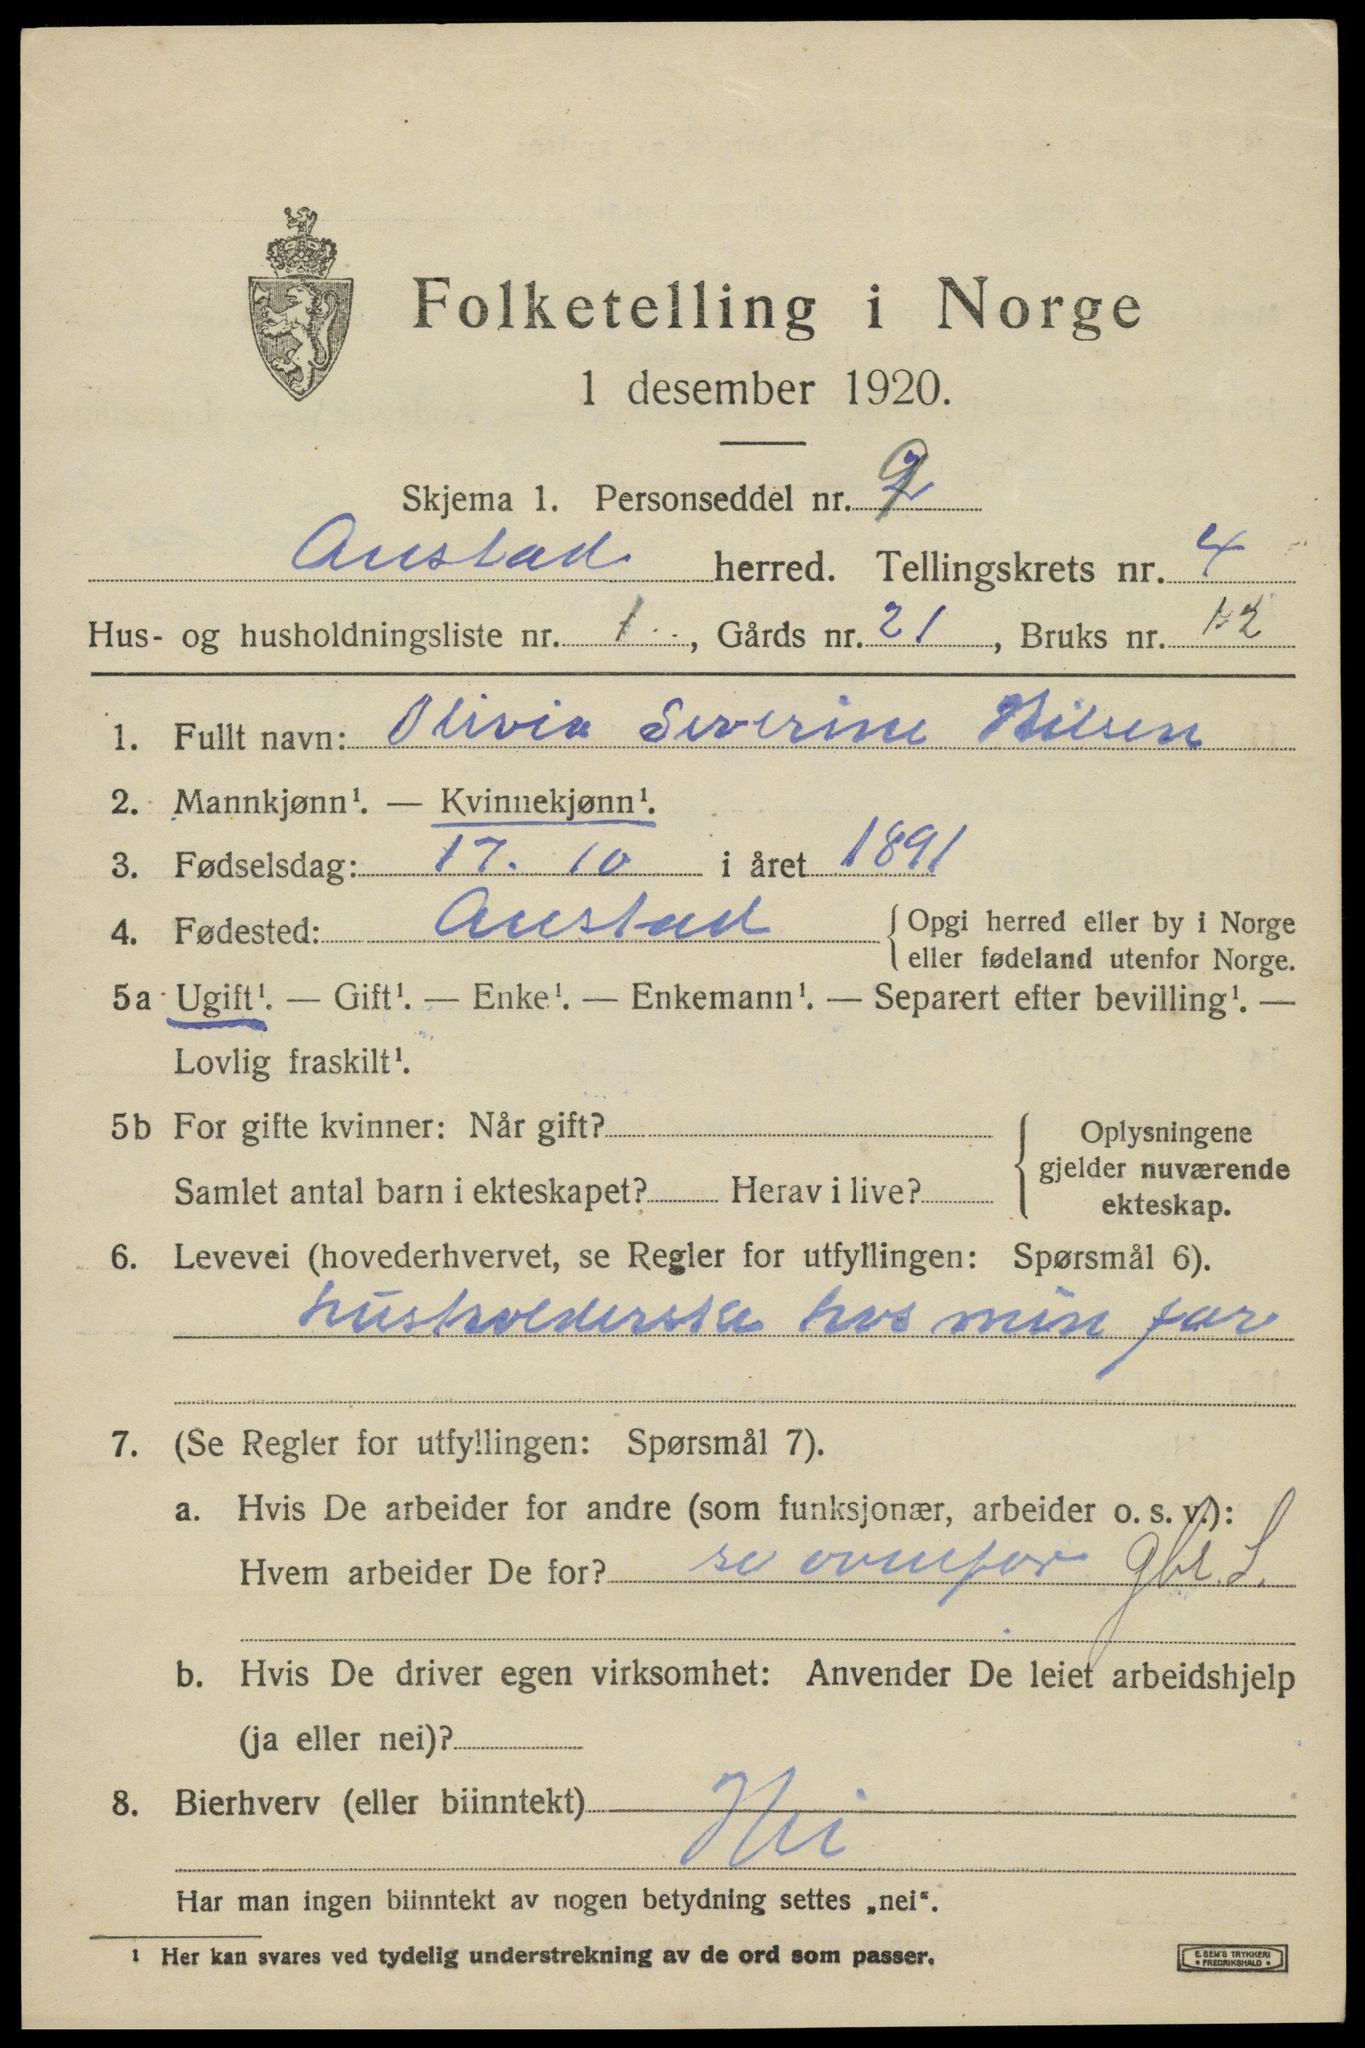 Folketelling i Norge
1 desember 1920.
Skjema 1. Personseddel nr.
Austad herred. Tellingskrets nr. 4
Hus- og husholdningsliste nr. 1, Gårds nr. 21, Bruks nr.
1. Fullt navn: Olivia Severine Nilsen
2. Mannkjønn¹. — Kvinnekjønn¹.
3. Fødselsdag: 17. 10 i året 1891
4. Fødested: Austad { Opgi herred eller by i Norge
eller fødeland utenfor Norge.
5a Ugift¹. — Gift¹. — Enke¹. — Enkemann¹. — Separert efter bevilling¹. —
Lovlig fraskilt¹.
5b For gifte kvinner: Når gift?
Samlet antal barn i ekteskapet? Herav i live?
Oplysningene
gjelder nuværende
ekteskap.
6. Levevei (hovederhvervet, se Regler for utfyllingen: Spørsmål 6).
husholderske hos min far
7. (Se Regler for utfyllingen: Spørsmål 7).
a. Hvis De arbeider for andre (som funksjonær, arbeider o. s. v.):
Hvem arbeider De for? se ovenfor gbr. S.
b. Hvis De driver egen virksomhet: Anvender De leiet arbeidshjelp
(ja eller nei)?
8. Bierhverv (eller biinntekt) Nei
Har man ingen biinntekt av nogen betydning settes „nei“.
¹ Her kan svares ved tydelig understrekning av de ord som passer.
E. SEM'S TRYKKERI
• FREDRIKSHALD •